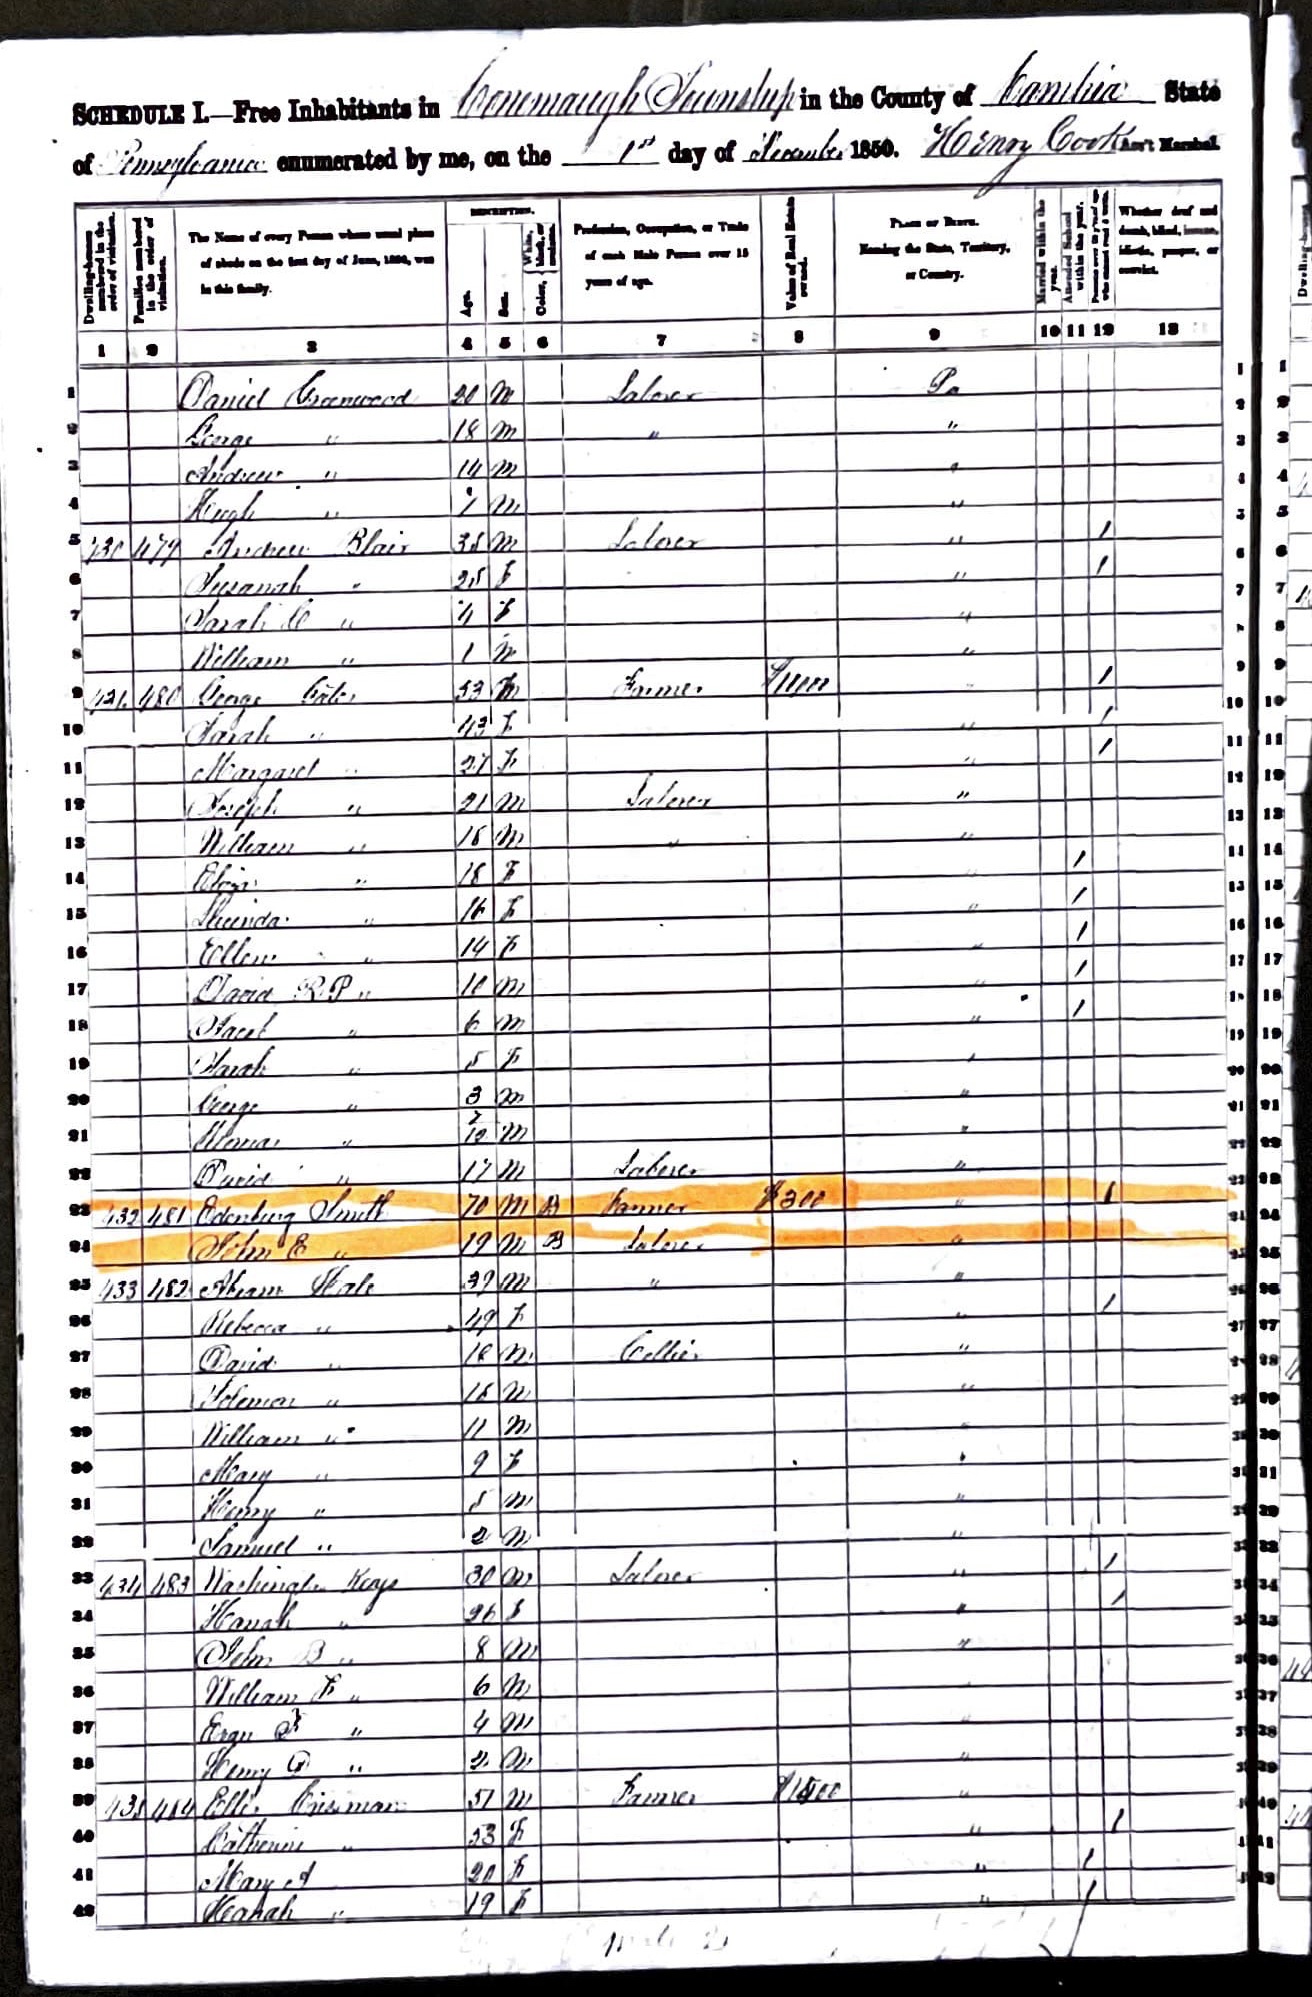 SCHEDULE I.—Free Inhabitants in Conemaugh Township in the County of Cambria State
of Pennsylvania enumerated by me, on the 1st day of December 1850. Henry Cook Ass't Marshal.
Dwelling-houses numbered in the order of visitation.
Families numbered in the order of visitation.
The Name of every Person whose usual place of abode on the first day of June, 1850, was in this family.
DESCRIPTION.
Age.
Sex.
Color, White, black, or mulatto.
Profession, Occupation, or Trade of each Male Person over 15 years of age.
Value of Real Estate owned.
PLACE OF BIRTH. Naming the State, Territory, or Country.
Married within the year.
Attended School within the year.
Persons over 20 y'rs of age who cannot read & write.
Whether deaf and dumb, blind, insane, idiotic, pauper, or convict.
1 2 3 4 5 6 7 8 9 10 11 12 13
1 Daniel Greenwood 20 M Laborer Pa
2 George " 18 M " "
3 Andrew " 14 M "
4 Hugh " 7 M "
5 430 479 Andrew Blair 38 M Laborer " 1
6 Susanah " 25 F " 1
7 Sarah " 4 F "
8 William " 1 M "
9 431 480 George 53 M Farmer " 1
10 Sarah " 43 F " 1
11 Margaret " 27 F " 1
12 Joseph " 21 M Laborer "
13 William " 18 M " "
14 18 F " 1
15 " 16 F " 1
16 Ellen " 14 F " 1
17 David R.P " 10 M " 1
18 Jacob " 6 M " 1
19 Sarah " 5 F "
20 George " 3 M "
21 " M "
22 David " 17 M Laborer "
23 432 481 Edenburg Smith 70 M B Farmer $300 " 1
24 John E " 19 M B Laborer "
25 433 482 Abram Hale 39 M " "
26 Rebecca " 49 F " 1
27 David " 18 M Collier "
28 Solomon " 15 M "
29 William " 11 M "
30 Mary " 9 F "
31 Henry " 5 M "
32 Samuel " 2 M "
33 434 483 Washington Keys 30 M Laborer " 1
34 Hanah " 26 F " 1
35 John B " 8 M "
36 William F " 6 M "
37 " 4 M "
38 Henry " 2 M "
39 435 484 51 M Farmer "
40 Catherine " 53 F " 1
41 Mary A 20 F " 1
42 Hanah " 19 F " 1